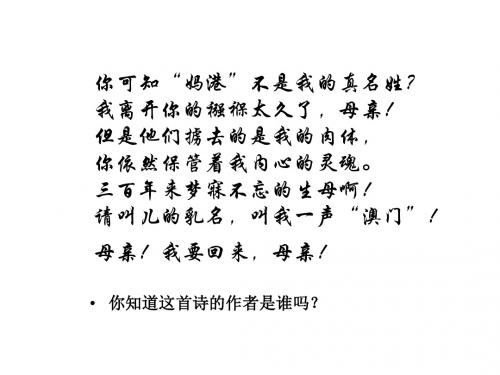 你可知“妈港”不是我的真名姓？
我离开你的襁褓太久了，母亲！
但是他们掳去的是我的肉体，
你依然保管着我内心的灵魂。
三百年来梦寐不忘的生母啊！
请叫儿的乳名，叫我一声“澳门”！
母亲！我要回来，母亲！
• 你知道这首诗的作者是谁吗？